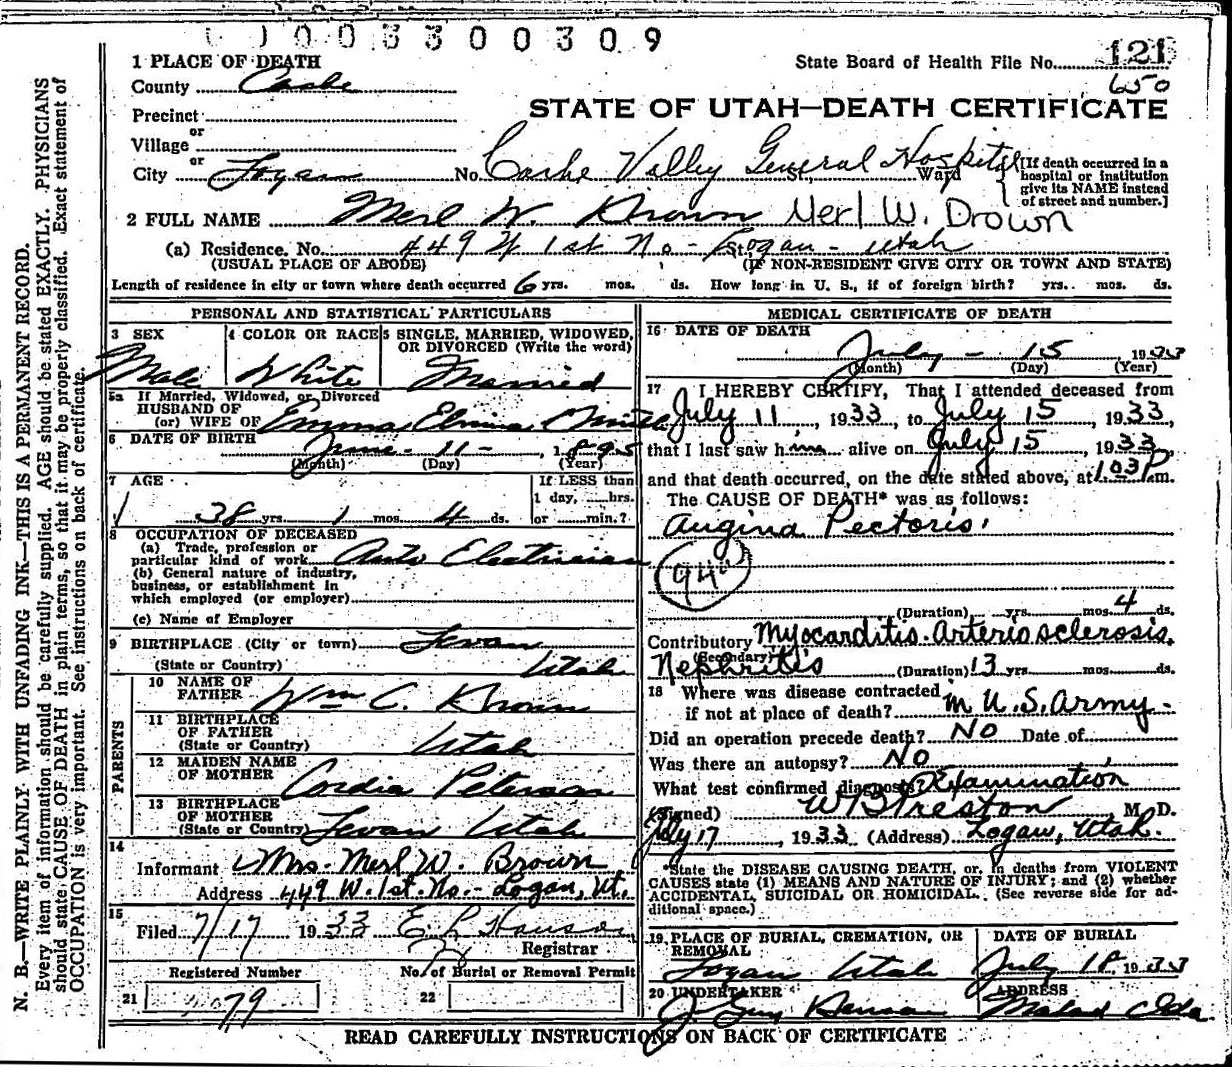 0 0 3 3 0 0 3 0 9
1 PLACE OF DEATH
State Board of Health File No. 121
650
County Cache
STATE OF UTAH—DEATH CERTIFICATE
Precinct
or
Village
or
City Logan No. Cache Valley General Hospital St., Ward
[If death occurred in a hospital or institution give its NAME instead of street and number.]
2 FULL NAME Merl W. Drown Merl W. Drown
(a) Residence. No. 449 W 1st No - St., Logan - Utah
(USUAL PLACE OF ABODE) (IF NON-RESIDENT GIVE CITY OR TOWN AND STATE)
Length of residence in city or town where death occurred 6 yrs. mos. ds. How long in U. S., if of foreign birth? yrs. mos. ds.
PERSONAL AND STATISTICAL PARTICULARS
3 SEX
Male
4 COLOR OR RACE
White
5 SINGLE, MARRIED, WIDOWED, OR DIVORCED (Write the word)
Married
5a If Married, Widowed, or Divorced
HUSBAND OF
(or) WIFE OF Emma Elmina Smith
6 DATE OF BIRTH
June - 11 - , 1895
(Month) (Day) (Year)
7 AGE
38 yrs. 1 mos. 4 ds.
If LESS than
1 day, hrs.
or min.?
8 OCCUPATION OF DECEASED
(a) Trade, profession or
particular kind of work Auto Electrician
(b) General nature of industry,
business, or establishment in
which employed (or employer)
(c) Name of Employer
9 BIRTHPLACE (City or town) Levan
(State or Country) Utah
PARENTS
10 NAME OF
FATHER Wm C. Drown
11 BIRTHPLACE
OF FATHER
(State or Country) Utah
12 MAIDEN NAME
OF MOTHER Cordia Peterson
13 BIRTHPLACE
OF MOTHER
(State or Country) Levan Utah
14
Informant Mrs. Merl W. Brown
Address 449 W. 1st. No. - Logan, Ut.
15
Filed 7/17 1933 E L Hanson
Registrar
Registered Number No. of Burial or Removal Permit
21 79 22
MEDICAL CERTIFICATE OF DEATH
16 DATE OF DEATH
July - 15 1933
(Month) (Day) (Year)
17 I HEREBY CERTIFY, That I attended deceased from
July 11, 1933, to July 15, 1933,
that I last saw him alive on July 15, 1933,
and that death occurred, on the date stated above, at 1:03 P.m.
The CAUSE OF DEATH* was as follows:
Angina Pectoris.
(Duration) yrs. mos. 4 ds.
Contributory Myocarditis. Arteriosclerosis.
(Secondary)
Nephritis (Duration) 13 yrs. mos. ds.
18 Where was disease contracted
if not at place of death? in U.S. Army -
Did an operation precede death? NO Date of
Was there an autopsy? NO
What test confirmed diagnosis? Examination
(Signed) W B Preston M. D.
July 17, 1933 (Address) Logan, Utah.
*State the DISEASE CAUSING DEATH, or, in deaths from VIOLENT
CAUSES state (1) MEANS AND NATURE OF INJURY; and (2) whether
ACCIDENTAL, SUICIDAL OR HOMICIDAL. (See reverse side for ad-
ditional space.)
19 PLACE OF BURIAL, CREMATION, OR
REMOVAL
Logan Utah
DATE OF BURIAL
July 18, 1933
20 UNDERTAKER
J Guy Hanson
ADDRESS
Malad Ida.
READ CAREFULLY INSTRUCTIONS ON BACK OF CERTIFICATE
N. B.—WRITE PLAINLY WITH UNFADING INK—THIS IS A PERMANENT RECORD.
Every item of information should be carefully supplied. AGE should be stated EXACTLY. PHYSICIANS
should state CAUSE OF DEATH in plain terms, so that it may be properly classified. Exact statement of
OCCUPATION is very important. See instructions on back of certificate.